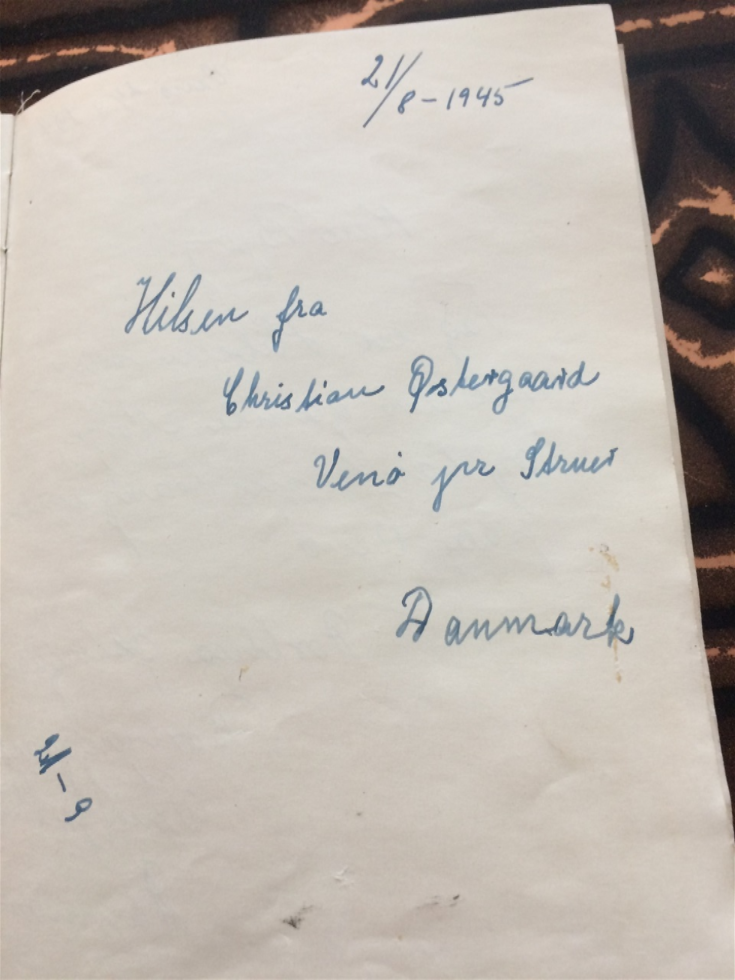 21/8-1945
Hilsen fra
Christian Østergaard
Venø pr Struer
Danmark